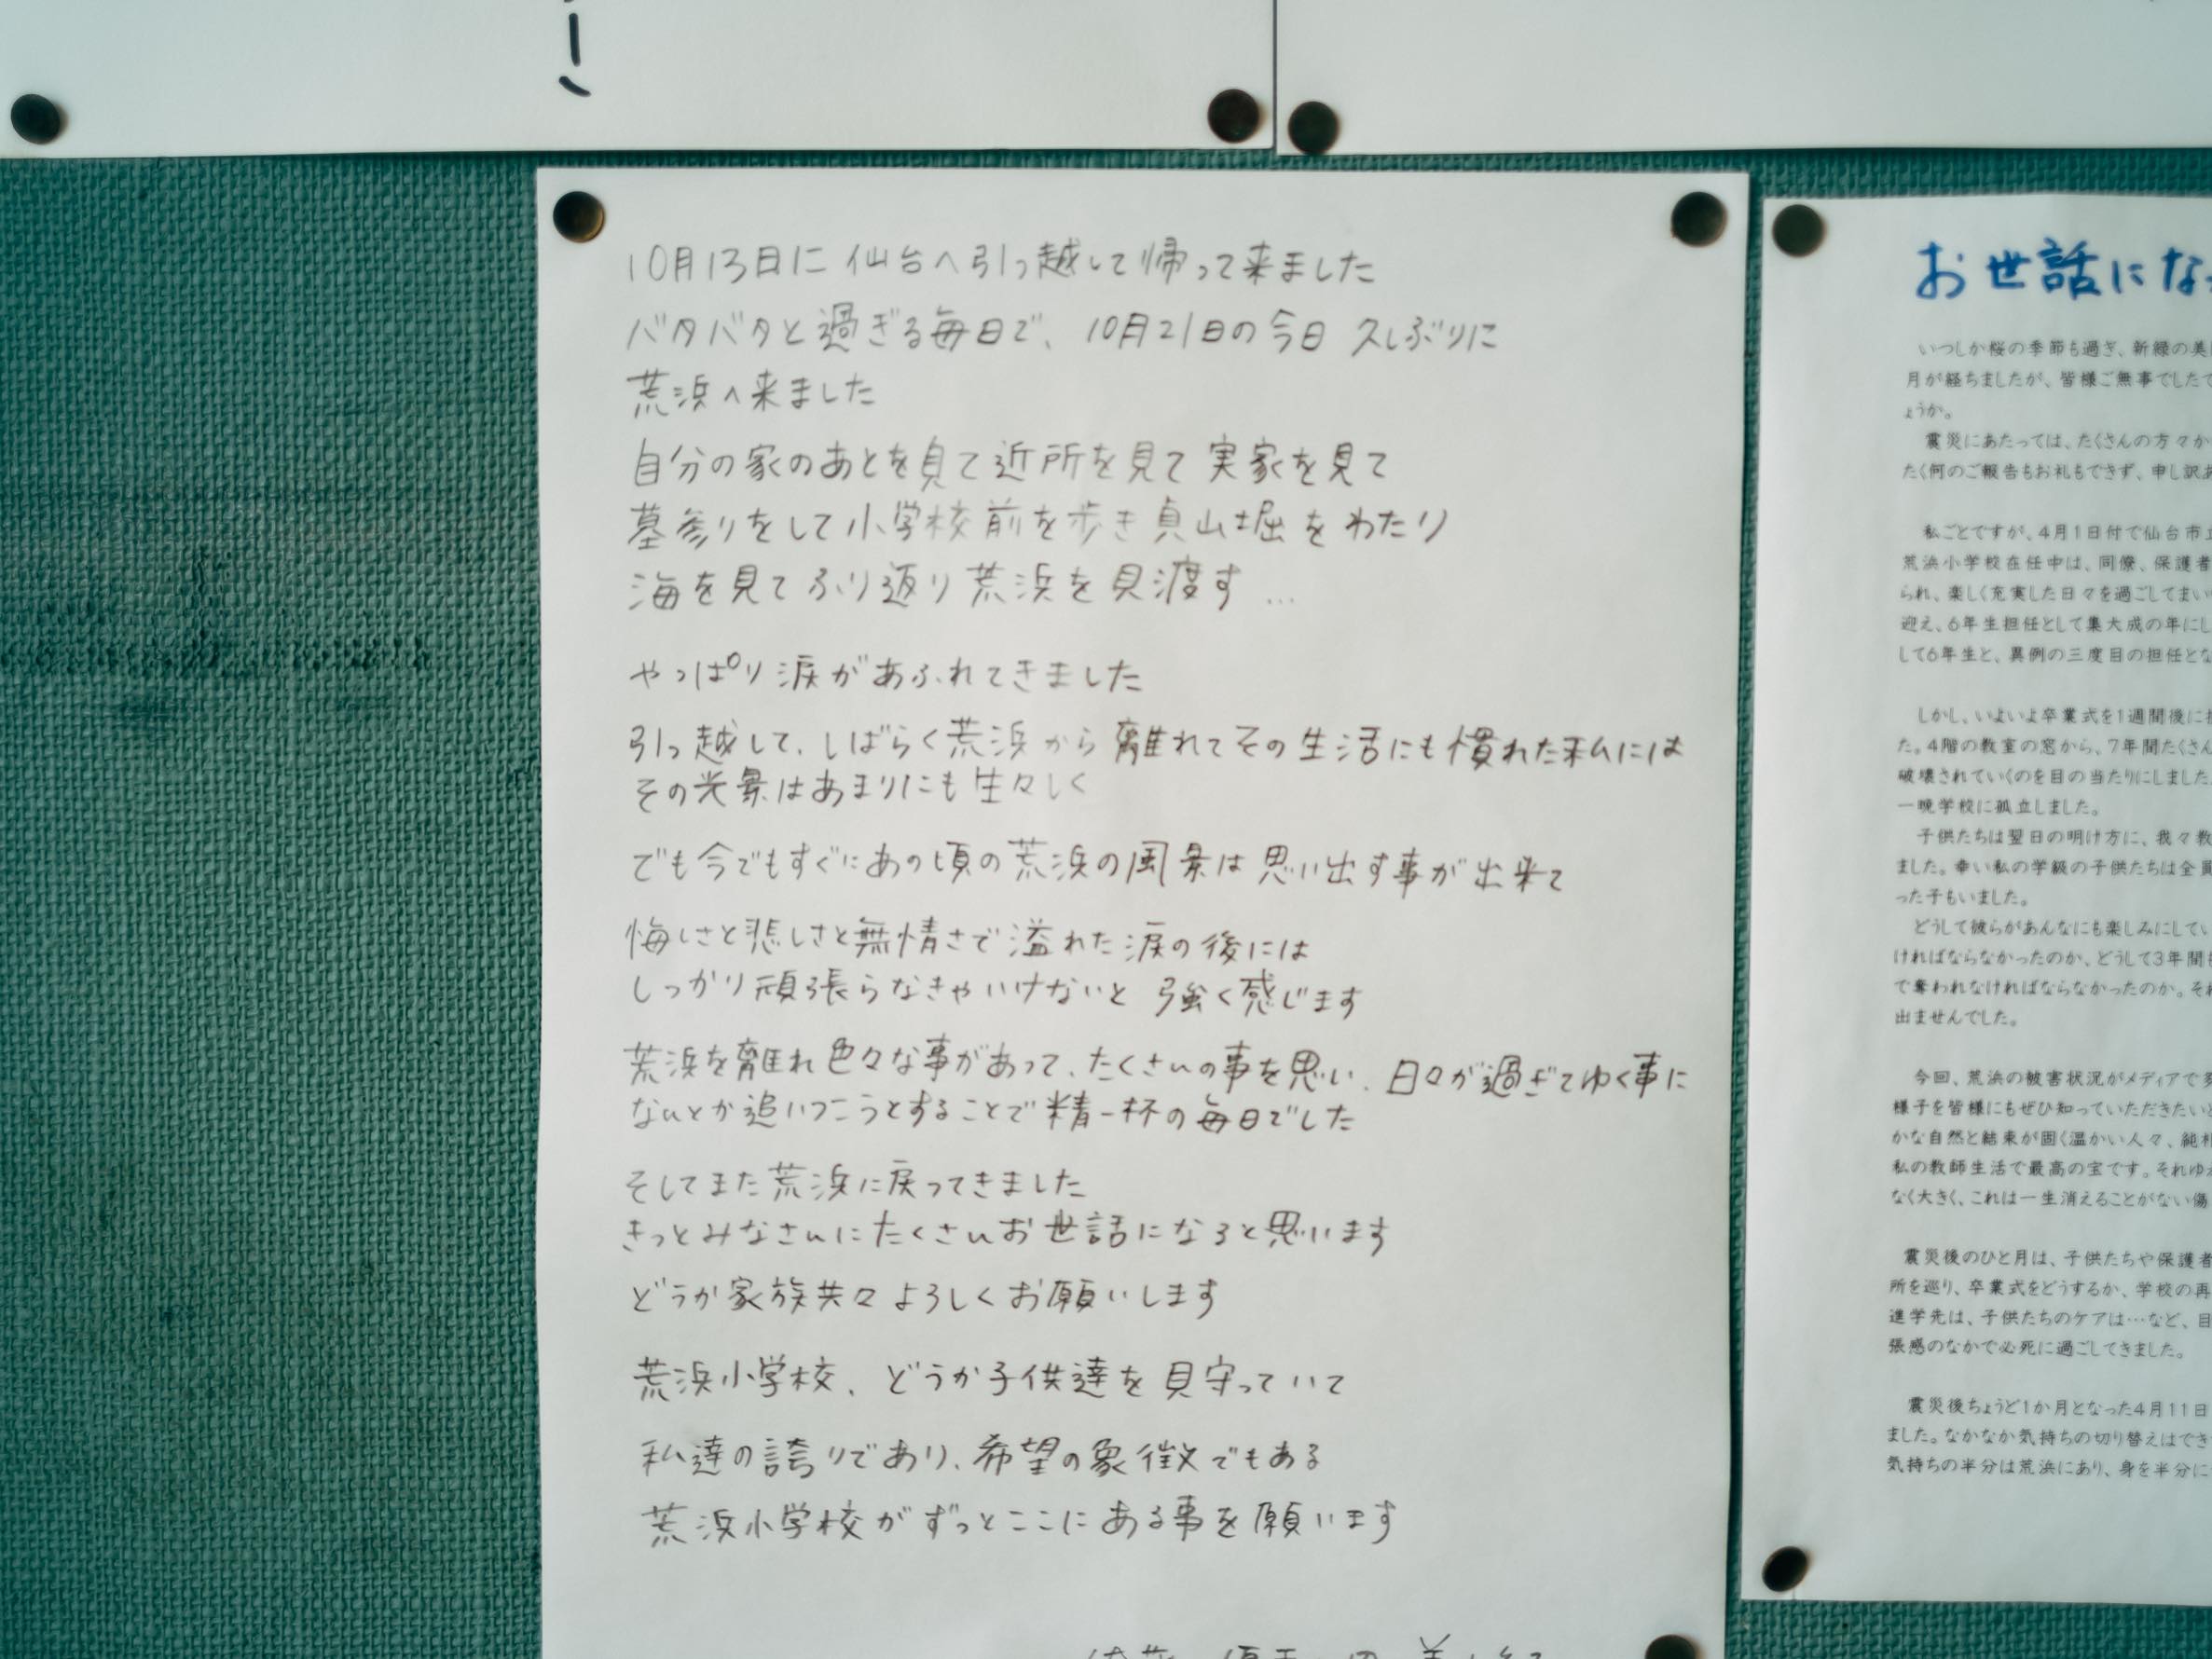 10月13日に 仙台へ引っ越して帰って来ました
バタバタと過ぎる毎日で、10月21日の今日 久しぶりに
荒浜へ来ました
自分の家のあとを見て近所を見て実家を見て
墓参りをして小学校前を歩き貞山堀をわたり
海を見てふり返り荒浜を見渡す…
やっぱり涙があふれてきました
引っ越して、しばらく荒浜から離れてその生活にも慣れた私には
その光景はあまりにも生々しく
でも今でもすぐにあの頃の荒浜の風景は思い出す事が出来て
悔しさと悲しさと無情さで溢れた涙の後には
しっかり頑張らなきゃいけないと 強く感じます
荒浜を離れ色々な事があって、たくさんの事を思い、日々が過ぎてゆく事に
なんとか追いつこうとすることで精一杯の毎日でした
そしてまた荒浜に戻ってきました
きっとみなさんにたくさんお世話になると思います
どうか家族共々よろしくお願いします
荒浜小学校、どうか子供達を見守っていて
私達の誇りであり、希望の象徴でもある
荒浜小学校がずっとここにある事を願います
お世話にな
いつしか桜の季節も過ぎ、新緑の美
月が経ちましたが、皆様ご無事でした
ょうか。
震災にあたっては、たくさんの方々か
たく何のご報告もお礼もできず、申し訳
私ごとですが、4月1日付で仙台市
荒浜小学校在任中は、同僚、保護者
られ、楽しく充実した日々を過ごしてまい
迎え、6年生担任として集大成の年にし
して6年生と、異例の三度目の担任とな
しかし、いよいよ卒業式を1週間後に
た。4階の教室の窓から、7年間たくさん
破壊されていくのを目の当たりにしました
一晩学校に孤立しました。
子供たちは翌日の明け方に、我々教
ました。幸い私の学級の子供たちは全員
った子もいました。
どうして彼らがあんなにも楽しみにしてい
ければならなかったのか、どうして3年間
で奪われなければならなかったのか。それ
出ませんでした。
今回、荒浜の被害状況がメディアで多
様子を皆様にもぜひ知っていただきたいと
かな自然と結束が固く温かい人々、純
私の教師生活で最高の宝です。それゆ
なく大きく、これは一生消えることがない傷
震災後のひと月は、子供たちや保護者
所を巡り、卒業式をどうするか、学校の再
進学先は、子供たちのケアは…など、目
張感のなかで必死に過ごしてきました。
震災後ちょうど1か月となった4月11日
ました。なかなか気持ちの切り替えはでき
気持ちの半分は荒浜にあり、身を半分に